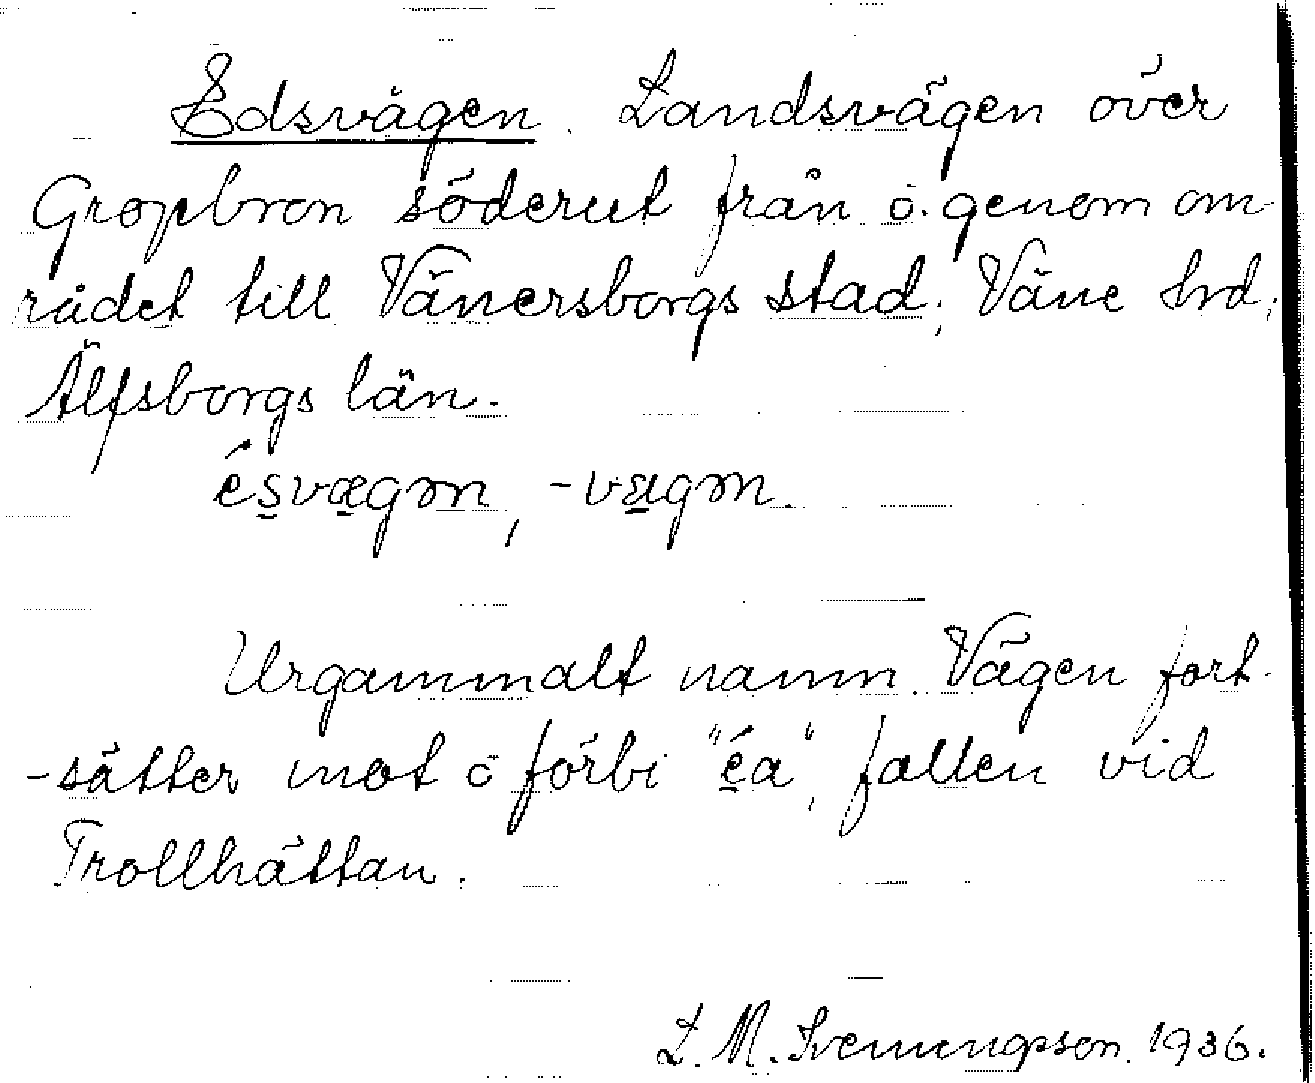 Edsvägen. Landsvägen över
Gropbron söderut från ö. genom om-
rådet till Vänersborgs stad, Väne hrd,
Älfsborgs län.
ésvægən, -vagən.
Urgammalt namn. Vägen fort-
-sätter mot ö förbi "éa", fallen vid
Trollhättan.
L. M. Svenungsson. 1936.